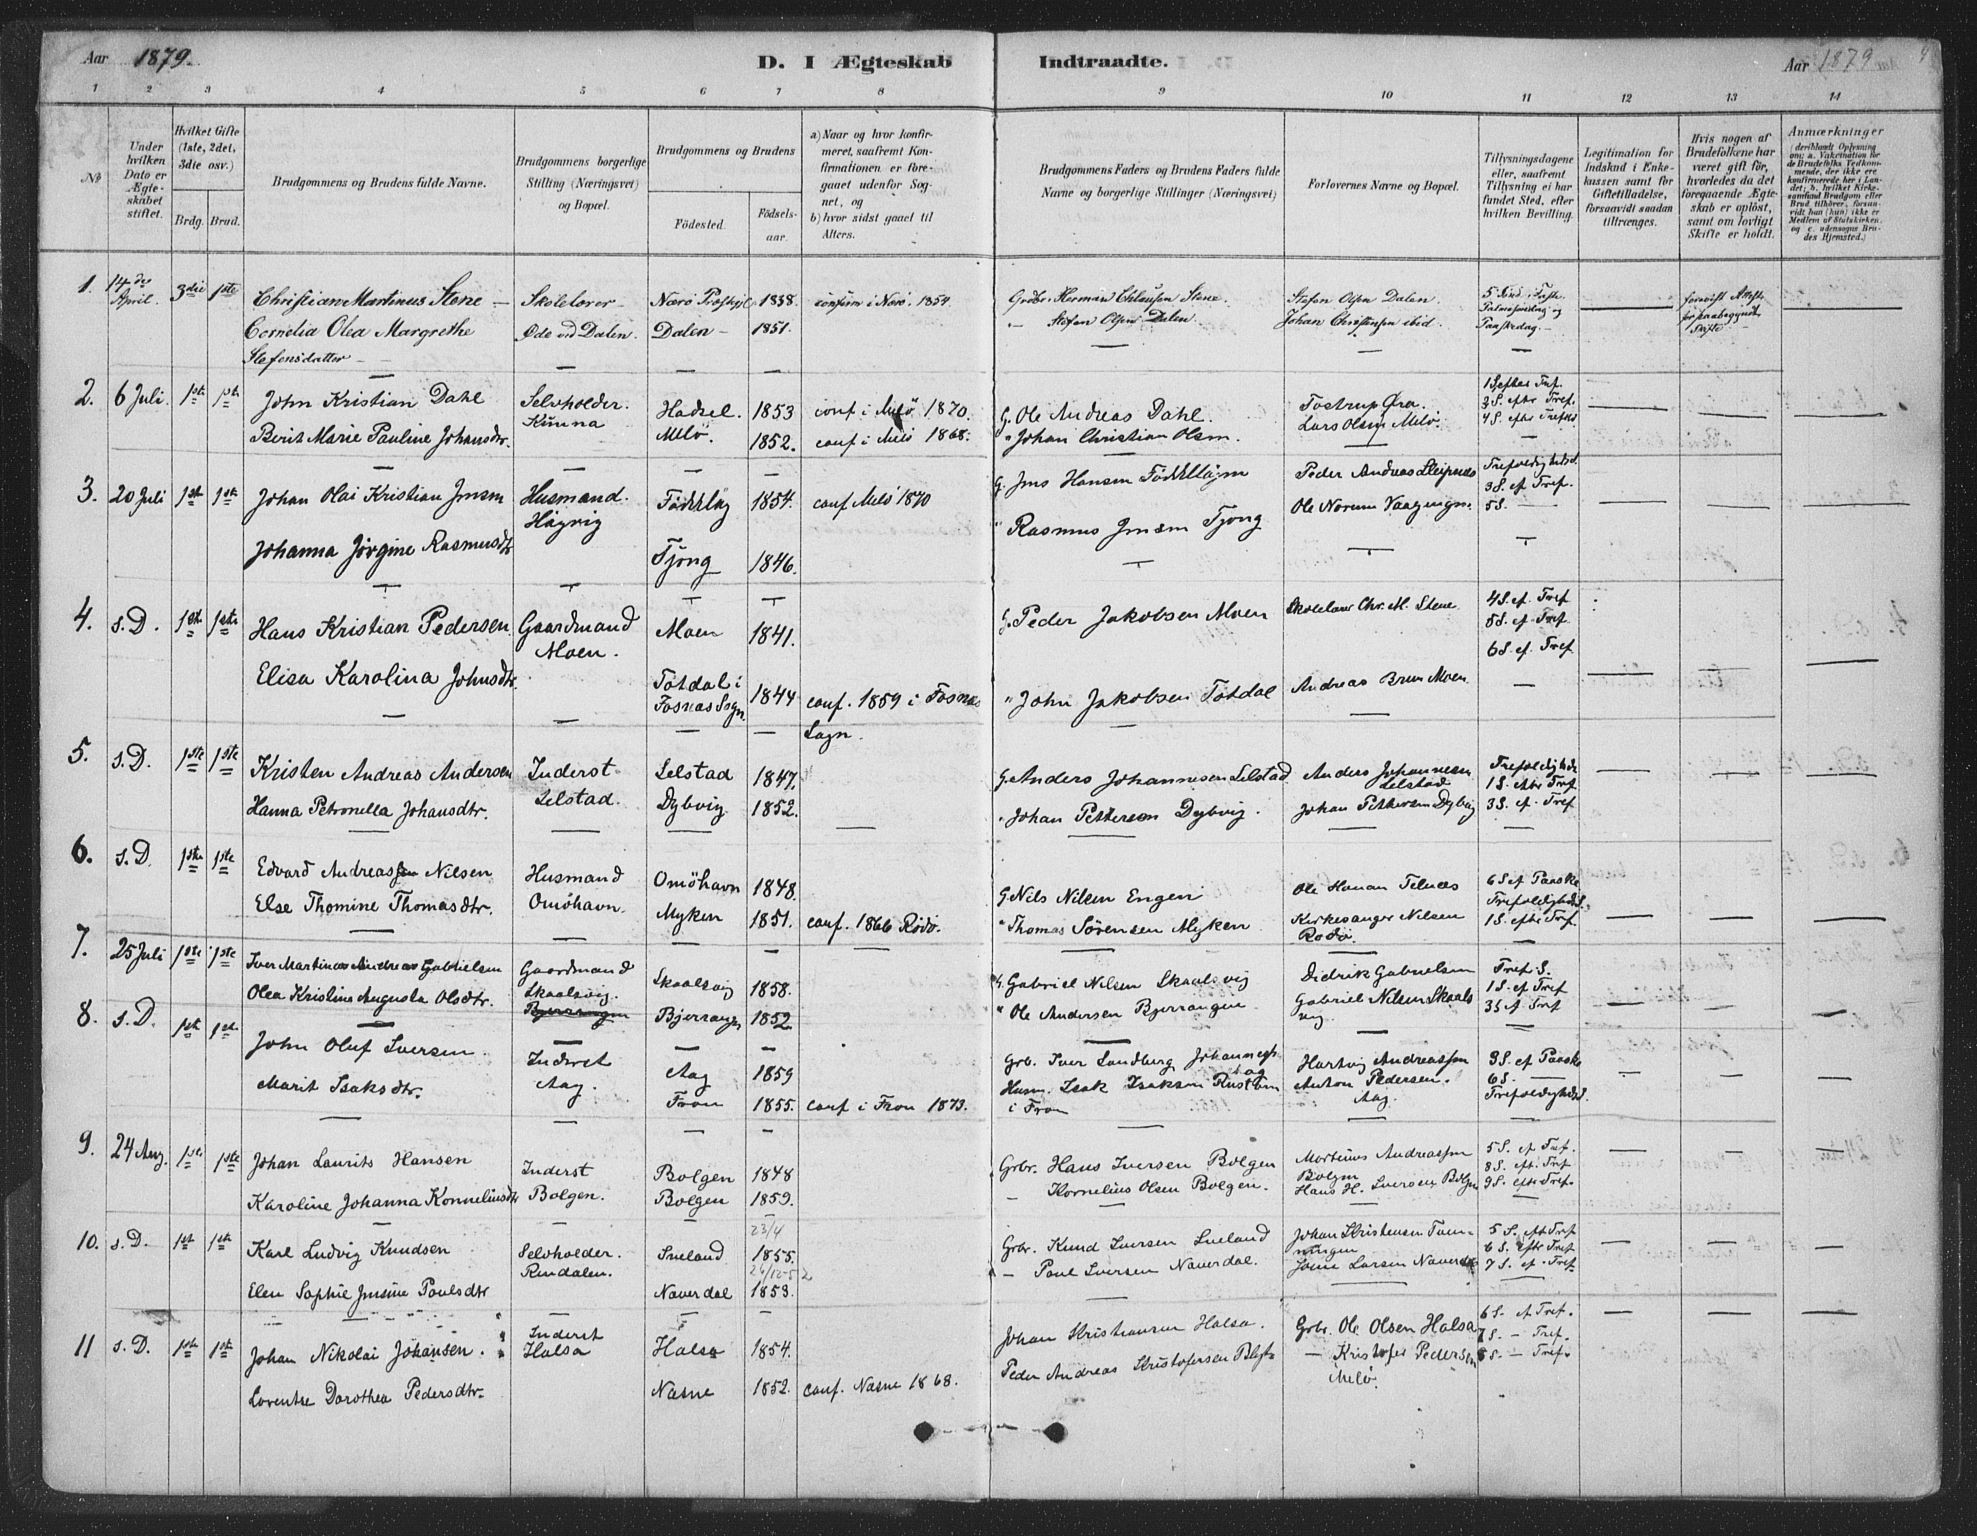 Aar 1879. D. I Ægteskab Indtraadte. Aar 1879
1 2 3 4 5 6 7 8 9 10 11 12 13 14
No
Under hvilken Dato er Ægteskabet stiftet.
Hvilket Gifte (1ste, 2det, 3die osv.)
Brdg. Brud.
Brudgommens og Brudens fulde Navne.
Brudgommens borgerlige Stilling (Næringsvei) og Bopæl.
Brudgommens og Brudens
Födested. Födsels-aar.
a) Naar og hvor konfirmeret, saafremt Konfirmationen er foregaaet udenför Sognet, og
b) hvor sidst gaaet til Alters.
Brudgommens Faders og Brudens Faders fulde Navne og borgerlige Stillinger (Næringsvei)
Forlovernes Navne og Bopæl.
Tillysningsdagene eller, saafremt Tillysning ei har fundet Sted, efter hvilken Bevilling.
Legitimation for Indskud i Enkekassen samt for Giftetilladelse, forsaavidt saadan tiltrænges.
Hvis nogen af Brudefolkene har været gift för, hvorledes da det foregaaende Ægteskab er oplöst, samt om lovligt Skifte er holdt.
Anmærkninger
1. 14de April. 3die 1ste Christian Martinus Stene – Skolelærer Nærö Præstgj. 1838. confirm. i Nærö. 1854. Grdbr. Herman Chlausen Stene. Stefan Olsen Dalen.
Cornelia Olea Margrethe Stefensdatter – Øde ved Dalen. Dalen – 1851. – Stefan Olsen Dalen. Johan Christensen ibid. Palmesöndag og Paaskedag.
2. 6 Juli. 1ste 1ste John Kristian Dahl Selvholder. Hadsel. 1853 conf i Melö 1870. G. Ole Andreas Dahl. Tostrup Øra. 1 S. efter Tref. 3 S. efter Tref. 4 S. efter Tref.
Berit Marie Pauline Johansdtr. Kunna Melö. 1852. conf i Melö 1868. " Johan Christian Olsen. Lars Olsen Melö.
3. 20 Juli 1ste 1ste Johan Olai Kristian Jensen Husmand. 1854. conf Melö 1870 G. Jens Hansen Peder Andreas Trefoldighedsd. 3 S. ef. Tref. 5 S. —
Johanna Jörgine Rasmusdtr Tjong 1846. " Rasmus Jensen Tjong Ole Norum
4. s. D. 1ste 1ste Hans Kristian Pedersen Gaardmand Moen. Moen 1841. G. Peder Jakobsen Moen Skolelærer Chr. M. Stene 4 S. ef. Tref 5 S. ef. Tref 6 S. ef. Tref
Elisa Karolina Johnsdtr. Totdal i Fosnæs Sogn 1844 conf. 1859 i Fosnæs Sogn. " John Jakobsen Totdal Andreas Brun Moen
5. s. D. 1ste 1ste Kristen Andreas Andersen Inderst Selstad. Selstad 1847. G. Anders Johannesen Selstad Anders Johannesen Selstad Trefoldighds 1 S. efter Tref 3 S. ef. Tref
Hanna Petronella Johansdtr. Dybvig 1852. " Johan Pettersen Dybvig. Johan Pettersen Dybvig
6. s. D. 1ste 1ste Edvard Andreas Nilsen Husmand Omöhavn. Omöhavn 1848. G. Nils Nilsen Engen Ole Hansen Telnes 6 S ef Paaske Trefoldighds. 1 S. efter Tref
Else Thomine Thomasdtr. Myken 1851. conf. 1866 Rödö. " Thomas Sörensen Myken Kirkesanger Nilsen Rödö.
7. 25 Juli 1ste 1ste Iver Martinus Andreas Gabrielsen Gaardmand Skaalsvig. Skaalsvig 1858. G. Gabriel Nilsen Skaalsvig Didrik Gabrielsen Tref. S. 1 S. ef Tref 3 S ef Tref
Olea Kristine Augusta Olsdtr. Bjerrangen 1852 " Ole Andersen Bjerrangen Gabriel Nilsen Skaalsvig.
8. s. D. 1ste 1ste John Oluf Iversen. Inderst Aag. Aag 1859 Grb. Iver Sundberg Aag Hartvig Andreassen 3 S. ef Paaske 6 S. — Trefoldighds.
Marit Isaksdtr. Fron 1855. conf i Fron 1873. Husm. Isak Isaksen i Fron Anton Pedersen. Aag.
9. 24 Aug. 1ste 1ste Johan Laurits Hansen Inderst Bolgen. Bolgen 1848 Grbr. Hans Iversen Bolgen Martinus Andreassen Bolgen 5 S. ef Tref. 8 S. eft. Tref 9 S. eft. Tref.
Karoline Johanna Kornneliusdtr Bolgen 1859. – Kornelius Olsen Bolgen. Hans H. Iversen Bolgen
10. s. D. 1ste 1ste Karl Ludvig Knudsen Selvholder. Rendalen. Sneland 23/4 1855. Grbr. Knud Iversen Sneland Johan Kristensen 5 S. eft Tref 6 S. efter Tref 7 S. ef. Tref
Elen Sophie Jensine Paulsdtr Naverdal 1853. – Paul Iversen Naverdal. Lorsen Naverdal
11 s. D. 1ste 1ste Johan Nikolai Johansen. Inderst Halsa Halsa 1854. Johan Kristiansen Halsa. Grbr. Ole Olsen Halsa 6 S. ef Tref. 7 S. – Tref. 8 S. – Tref.
Lorentse Dorothea Pedersdtr. Næsne 1852. conf. Næsne 1868. Peder Andreas Kristofersen – Kristofer Pedersen Melö.